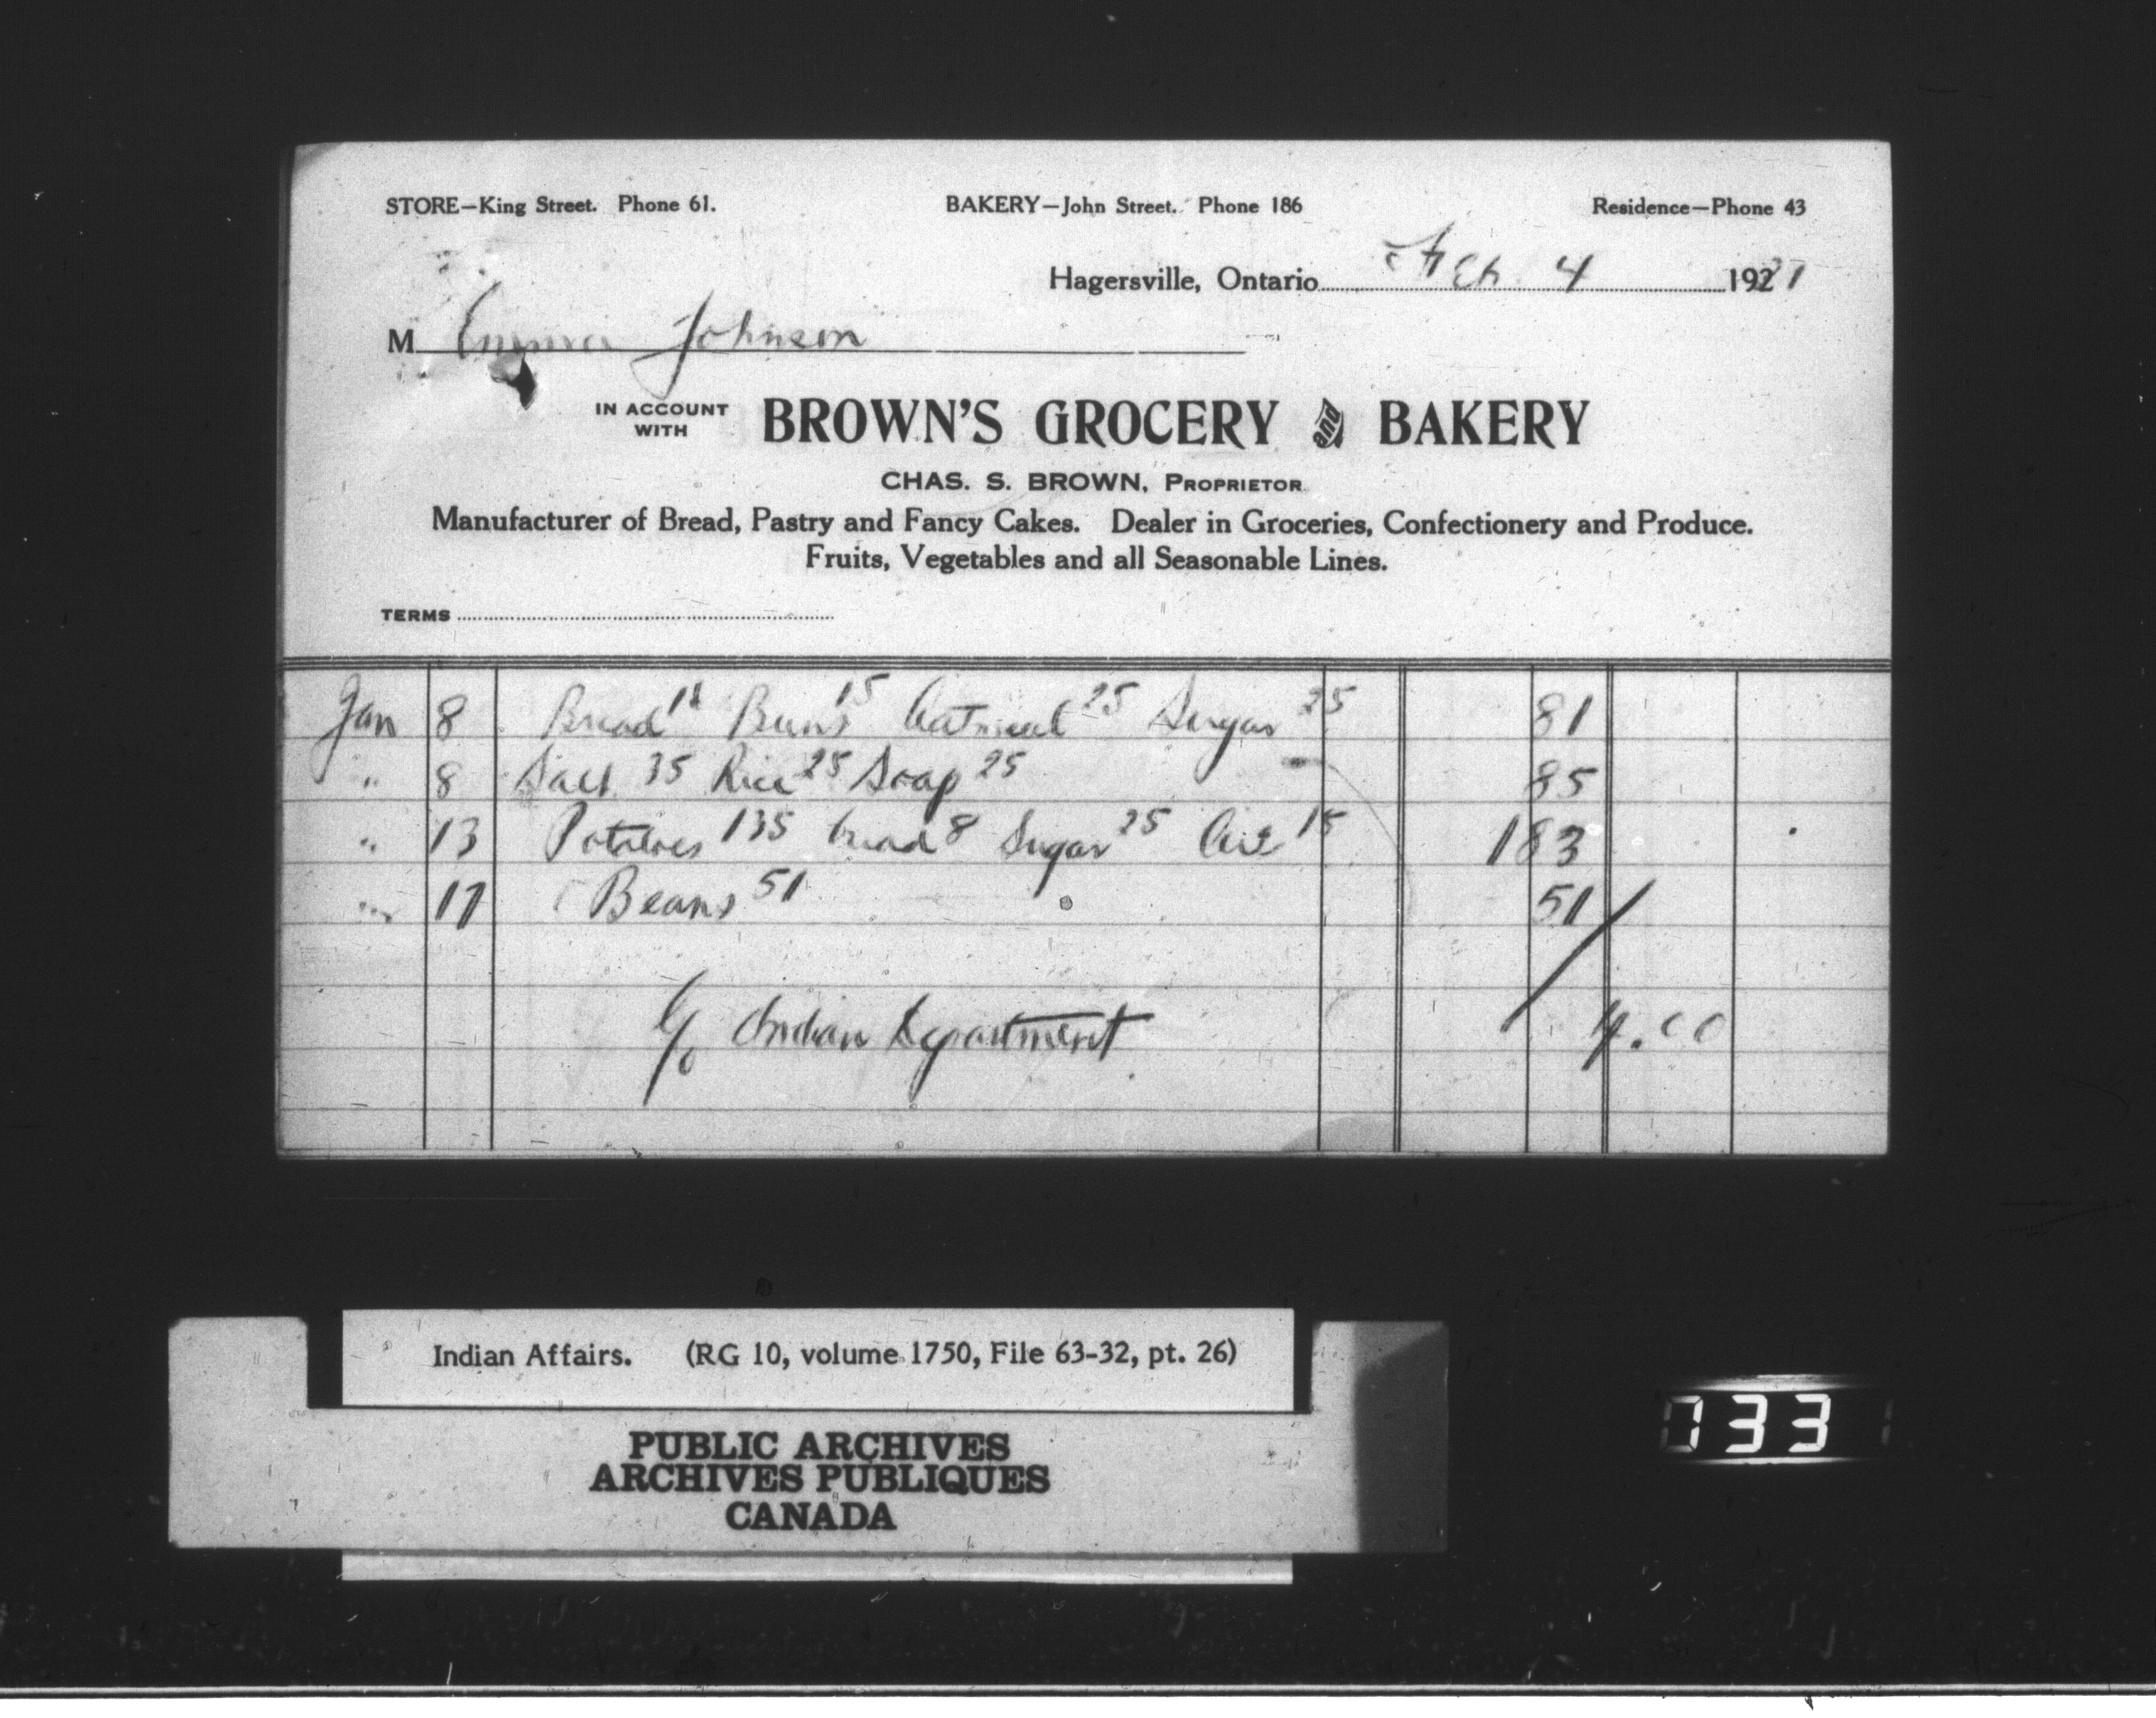 STORE—King Street. Phone 61. BAKERY—John Street. Phone 186 Residence—Phone 43
Hagersville, Ontario Feb. 4 1921
M Emma Johnson
IN ACCOUNT WITH BROWN'S GROCERY and BAKERY
CHAS. S. BROWN, PROPRIETOR
Manufacturer of Bread, Pastry and Fancy Cakes. Dealer in Groceries, Confectionery and Produce.
Fruits, Vegetables and all Seasonable Lines.
TERMS
Jan 8 Bread Buns 15 Oatmeal 25 Sugar 25 81
" 8 Salt 35 Rice 25 Soap 25 85
" 13 Potatoes 135 bread 8 Sugar 25 15 183
" 17 Beans 51 51
c/o Indian Department 4.00
Indian Affairs. (RG 10, volume 1750, File 63-32, pt. 26)
PUBLIC ARCHIVES
ARCHIVES PUBLIQUES
CANADA
733